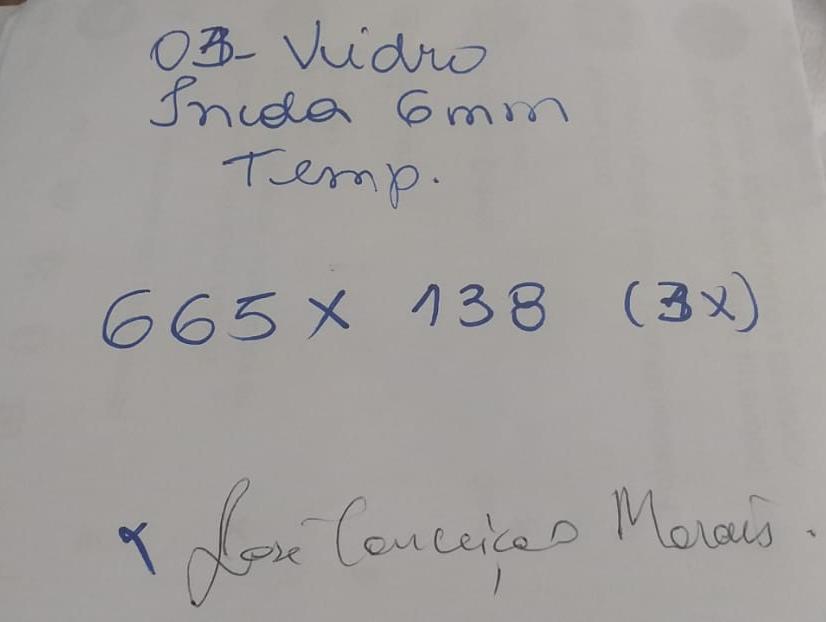 03- Vidro
Incda 6mm
Temp.
665 x 138 (3x)
x José Conceição Morais.